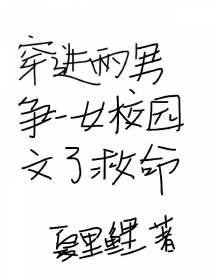 穿进两男
争一女校园
文了救命
夏里鲤 著